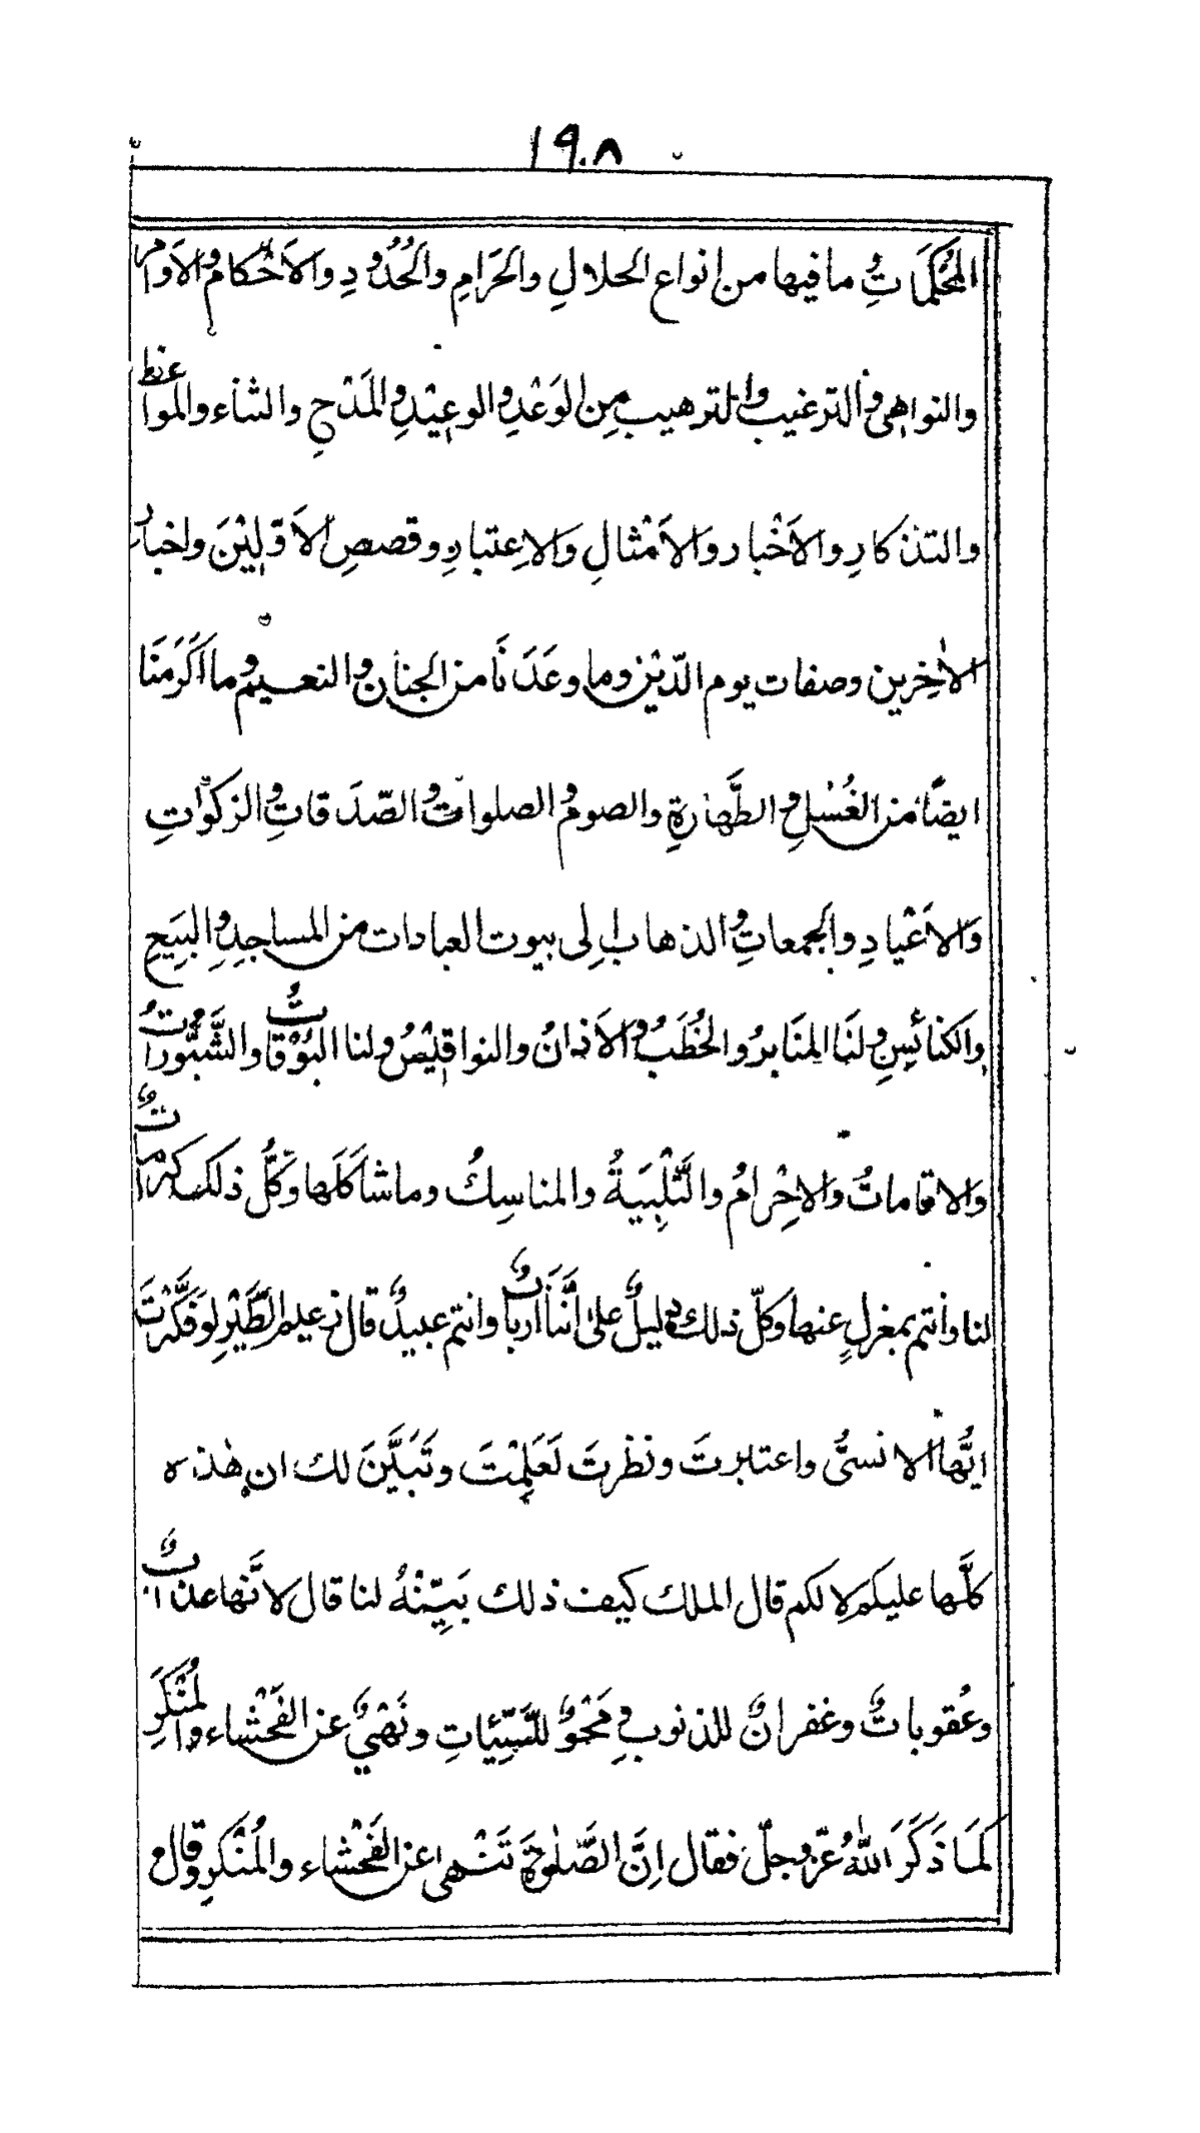 ١٩٠٨
المُحْكَمَاتُ وما فيها من انواع الحلالِ والحَرَامِ والحُدُوُدِ والاَحْكام والاَوامر
والنواهى و الترغيب والترهيب مِن الوَعْدِ والوعِيْدِ والمَدْح والثنأء والمواعظ
والتذكارِ والاَخْبار والاَمْثالِ وَالاِعتبارِ وقصصِ الاَوَّلِيْنَ واخبار
الاٰخِرين وصفات يوم الدّيْن وما وعَدَنَا من الجنانِ والنعيم وما اَكْرَمَنَا
ايضًا من الغُسْلِ و الطَّهٰارةِ والصوم و الصلوات و الصّدَقاتِ و الزكوٰاتِ
وَالاَعْيادِ والجمعاتِ و الذهاب اِلى بيوت العبادات من المساجدِ و البِيَعِ
والكنائسِ ولنَا المنَابرُ والخُطَبُ و الاَذانُ والنواقِيْصُ ولنا البُوْقاتُ والشَّبُّوراتُ
والاقاماتُ والاِحْرامُ والتَّلْبِيَةُ والمناسِكُ وما شاكَلَها وَكلُّ ذلك كراماتٌ
لنا وانتم بمغزلٍ عنها وكلّ ذلك دليلٌ علىٰ اَنَّنَا اربابٌ وانتم عبيدٌ قال زعيم الطَّيْرِ لوَ فَكَّرْتَ
ايّها الانسىُّ واعتبرتَ ونظرتَ لَعَلِمْتَ وتَبَيَّنَ لك ان هٰذه
كلَّها عليكم لا لكم قال الملك كيف ذلك بَيِّنْهُ لنا قال لانَّها عذابٌ
وعُقوباتٌ وغفرانٌ للذنوب و مَحْوٌ للسَّيِّئاتِ ونَهْيٌ عن الفَحْشاء والمُنْكَرِ
كمَا ذَكَرَ اللّٰهُ عزّ وجلّ فقال اِنَّ الصَّلٰوةَ تَنْهى عن الفَحْشاء والمُنْكر وقال